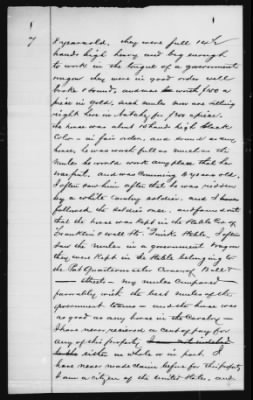 7
8 years old, they were full 14 1/2
hands high heavy and big enough
to work in the tongue of a government
wagon they were in good order well
broke & sound, and was worth $150 a
piece in gold. such mules now are selling
right here in Natchez for $200 apiece.
The horse was about 15 hands high black
color - in fair order, and sound as any
horse, he was worth full as much as the
mules he would work any place that he
was put. and was coming 4 years old.
I often saw him after that he was ridden
by a white cavalry soldier. and I have
followed the soldier once. and found out
that the horse was kept in the Stable Cor of
Franklin & wall Sts. Stable, I often
saw the mules in a government wagon
they were kept in the Stable belonging to
the Post Quartermaster Corner of
Streets - my mules compared
favorably with the best mules of the
government teams - and the horse was
as good as any horse in the Cavalry -
I have never received a cent of pay for
any of this property
either in whole or in part. I
have never made claim before for this property
I am a citizen of the United States, and